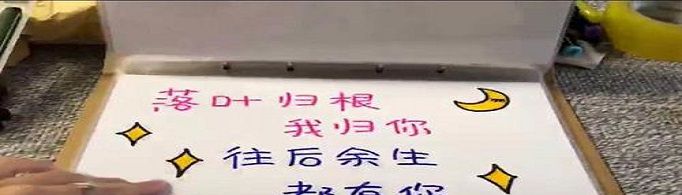 落叶归根
我归你
往后余生
都有你